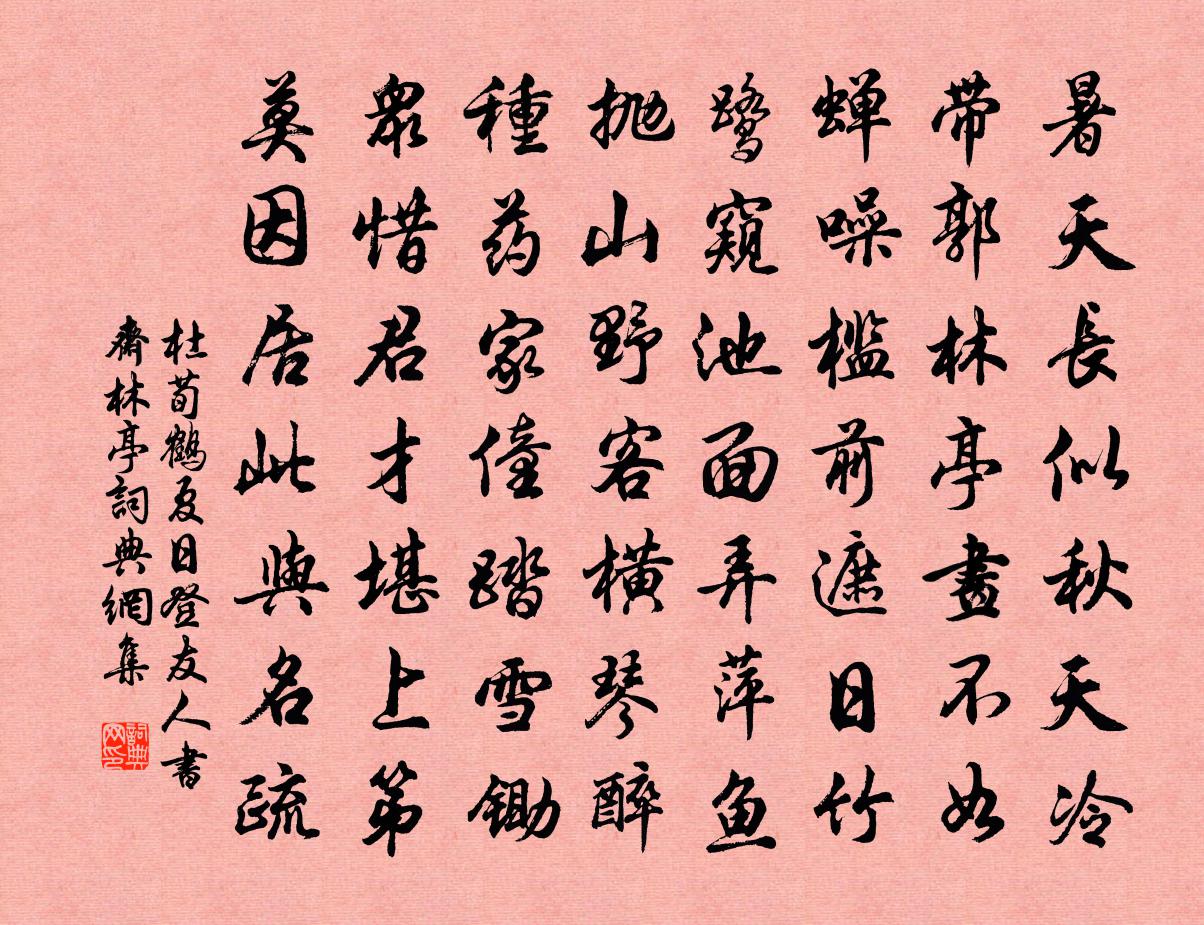 暑天長似秋天冷
帶郭林亭畫不如
蝉噪檻前遮日竹
鹭窺池面弄萍鱼
抛山野客橫琴醉
種药家僮踏雪鋤
衆惜君才堪上第
莫因居此與名疏
杜荀鶴夏日登友人書
齋林亭詞典網集
詞典网印